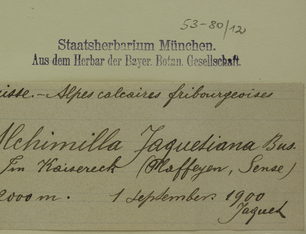 53-80/12
Staatsherbarium München.
Aus dem Herbar der Bayer. Botan. Gesellschaft.
isse. - Alpes calcaires fribourgeoises
Alchimilla Jaquetiana Bus.
Im Kaisereck (Plaffeyen, Sense)
2000 m. 1 September 1900
Jaquet